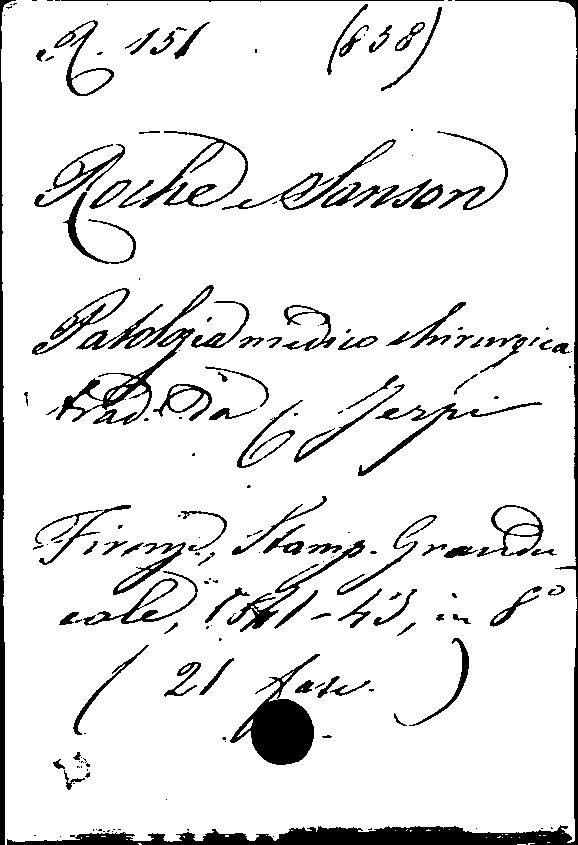 R. 151 (838)
Roche e Sanson
Patologia medico chirurgica
trad. da G. Jerpi
Firenze, Stamp. Grandu
cale, 1841-43, in 8°
( 21 fasc. )